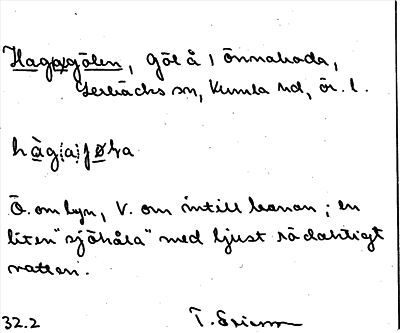 Hagagölen, göl å 1 Önnaboda,
Lerbäcks sn, Kumla hd, ör. l.
hàg(a)jøła
Ö. om byn, V. om intill banan; en
liten "sjöhåla" med ljust rödaktigt
vatten.
32.2 T. Ericsson